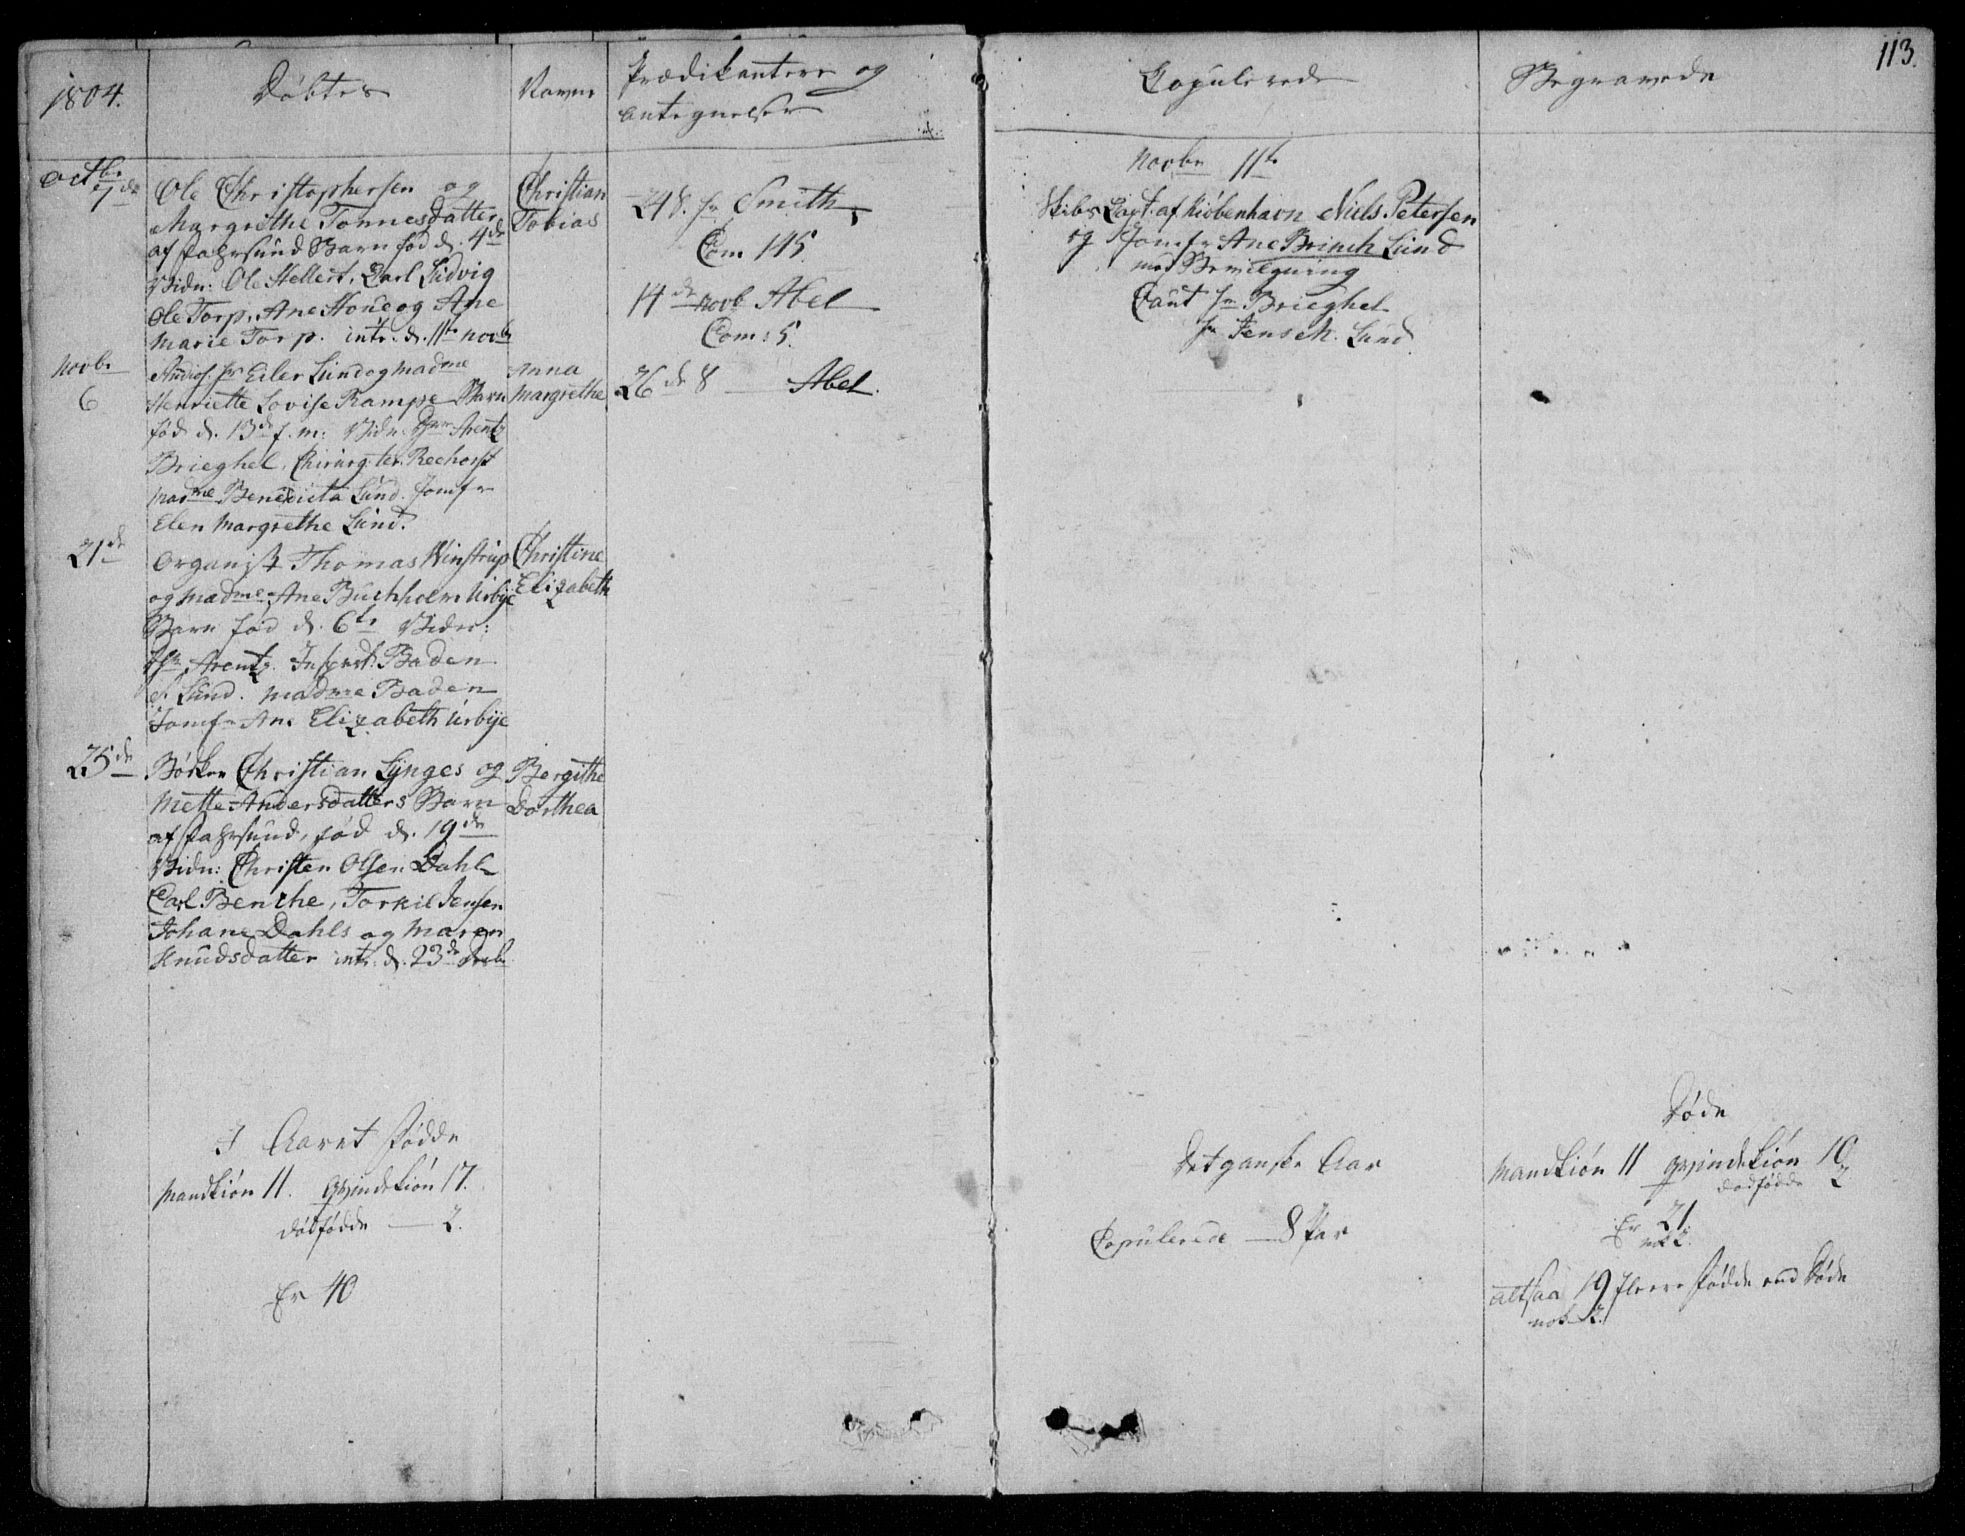 113.
1804.
Döbtes
Navne
Prædikantere og
antegnelser
Copulerede
Begravede
Octbr
7de
Ole Christophersen og
Margrethe Tonnesdatter
af Fahrsund Barn fød d. 4de
Vidn: Ole Stellert, Carl Ludvig
Ole Torp, Ane Houe og Ane
Marie Torp. intr. d. 11te Novb
Christian
Tobias
Novbr
6
Audios. Hr Eiler Lund og Madme
Henriette Lovise Kampe Barn
fød d. 13de f. m: Vidn: Hr Arentz
Brieghel, Chirurg. ter. Rechorst
Madme Benedicta Lund. Jomfr
Elen Margrethe Lund.
Anna
Margrethe
21de
Organist Thomas Winstrup
og Madme Ane Buchholm Urbye
Barn fød d. 6te Vidn:
Hr Arentz. Inspect. Baden
Lund. Madme Baden
Jomfr Ane Elizabeth Urbye
Christine
Elizabeth
25de
Bödker Christian Lynges og
Mette Andersdatters Barn
af Fahrsund, fød d. 19de
Vidn: Christen Olsen Dahl
Carl Benche, Torkil Jensen
Johane Dahls og Maren
Knudsdatter intr. d. 23de Decbr
Bergithe
Dorthea
248. Hr Smith
Com 145.
14de Novb Abel
Com: 5.
26de 8 Abel.
Novbr 11te
Skibs Capt. af Kiöbenhavn Niels Petersen
og Jomfr Ane Brinch Lund
med Bevilgning
Caut Hr Brieghel
Hr Jens M. Lund
I Aaret Födde
Mandkiön 11. Qvindekiön 17.
dödfödde 2.
Er 40
Det ganske Aar
Copulerede 8 Par
Döde
Mandkiön 11 Qvindekiön 10
dödfödde 2
Er 21
nok 2.
altsaa 19 flere Födde end Döde
nok 2.